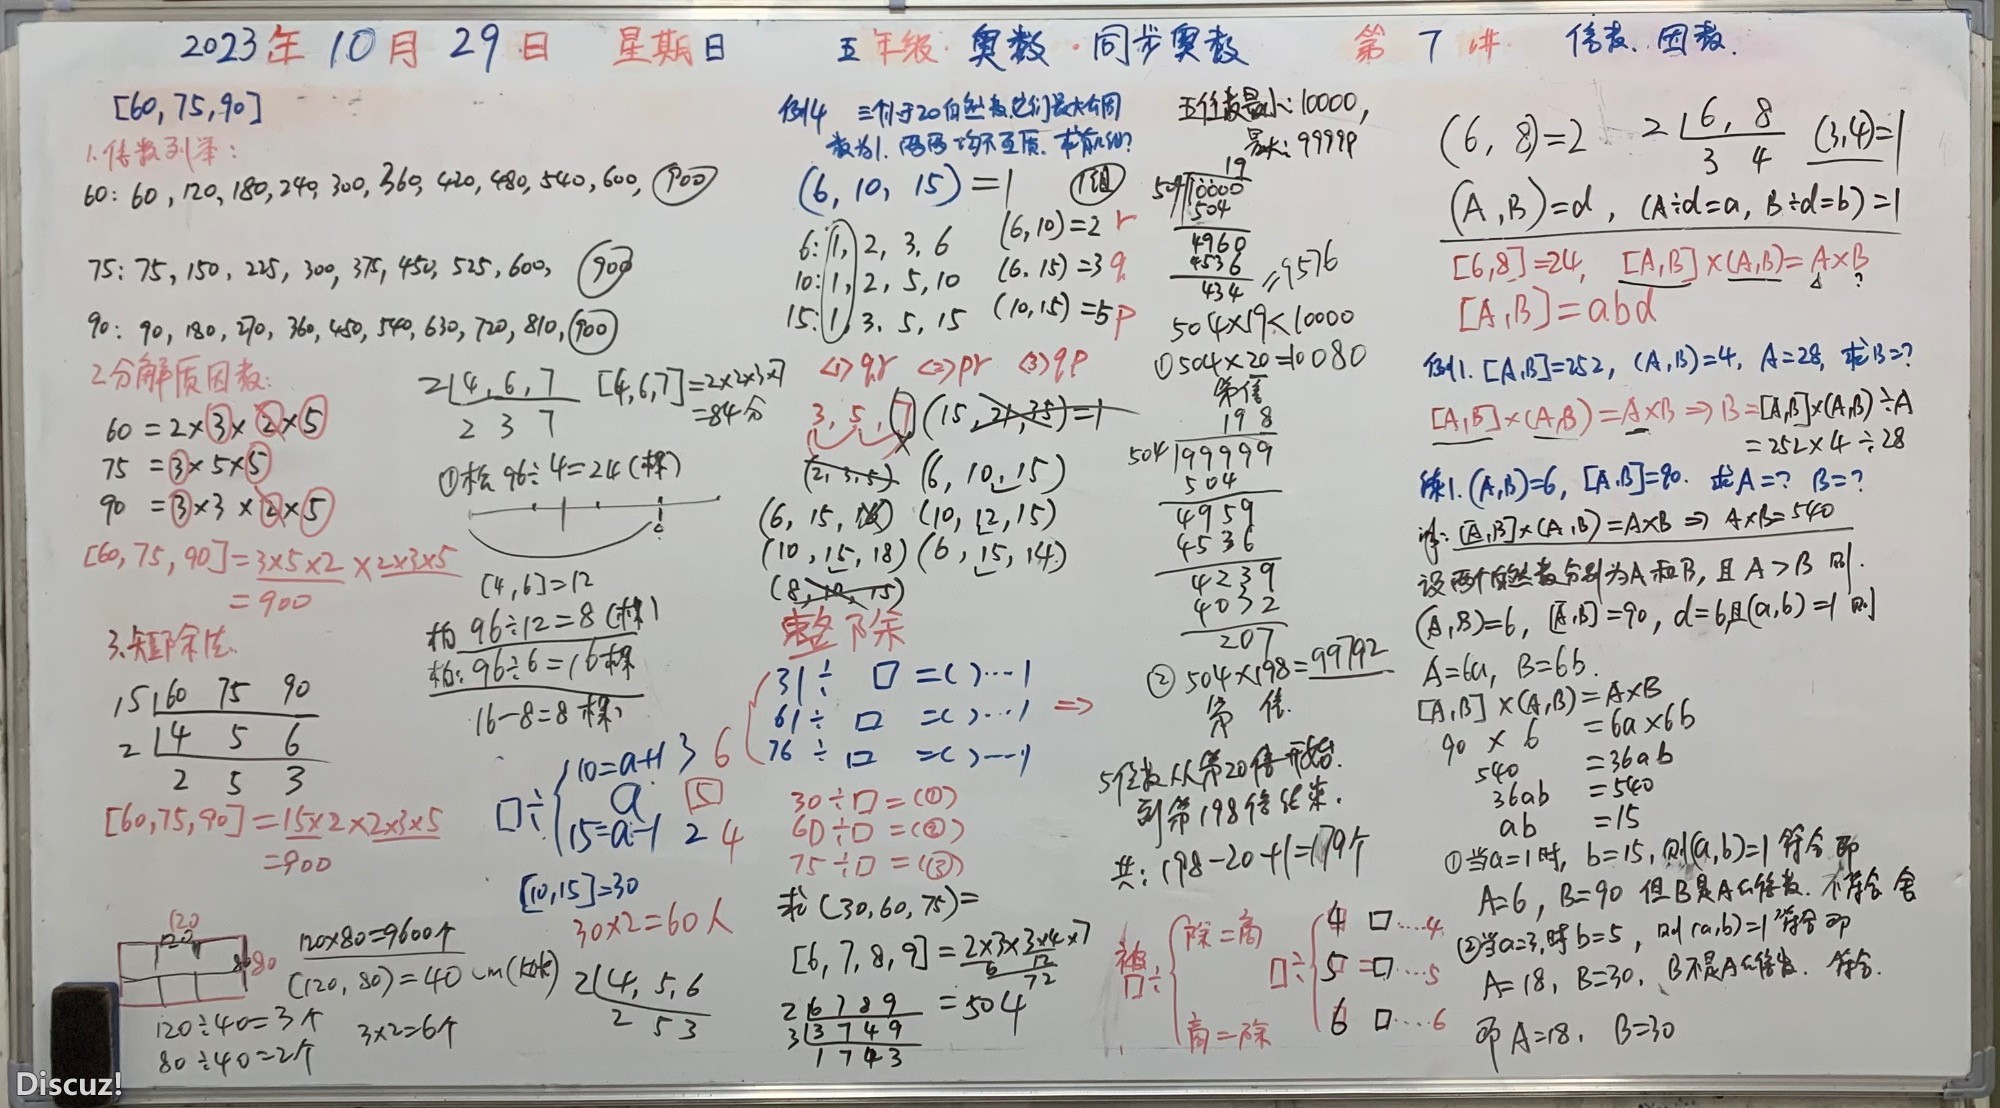 2023年10月29日 星期日 五年级·奥数·同步奥数 第7讲 倍数.因数.
[60,75,90]
1.倍数列举:
60: 60, 120, 180, 240, 300, 360, 420, 480, 540, 600, 900
75: 75, 150, 225, 300, 375, 450, 525, 600, 900
90: 90, 180, 270, 360, 450, 540, 630, 720, 810, 900
2.分解质因数:
60=2×3×2×5
75=3×5×5
90=3×3×2×5
[60,75,90]=3×5×2×2×3×5
=900
3.短除法.
15 60 75 90
2 4 5 6
2 5 3
[60,75,90]=15×2×2×3×5
=900
120
120
80 80
120×80=9600个
(120,80)=40cm
120÷40=3个
80÷40=2个
3×2=6个
2 4,6,7
2 3 7
[4,6,7]=2×2×3×7
=84分
① 96÷4=24(棵)
[4,6]=12
96÷12=8(棵)
96÷6=16棵
16-8=8棵
□÷
10=a+1 3 6
a 5
15=a-1 2 4
[10,15]=30
30×2=60人
2 4,5,6
2 5 3
例4 三个小于20自然数,它们最大公因
数为1.两两均不互质.求有几组?
(6,10,15)=1 1组
6: 1, 2, 3, 6 (6,10)=2 r
10: 1, 2, 5, 10 (6.15)=3 q
15: 1, 3, 5, 15 (10,15)=5 p
<1>qr <2>pr <3>qp
3, 5, 7 (15,21,35)=1
(2,3,5) (6,10,15)
(6,15, ) (10,12,15)
(10,15,18) (6,15,14)
(8,10,15)
整除
31÷□=( )…1
61÷□=( )…1
76÷□=( )…1
⇒
30÷□=(①)
60÷□=(②)
75÷□=(③)
求(30,60,75)=
[6,7,8,9]=2×3×3×4×7
6 12
72
=504
2 6 7 8 9
3 3 7 4 9
1 7 4 3
五位数最小:10000,
最大:99999
19
504 10000
504
4960
4536
434
9576
504×19<10000
①504×20=10080
第 倍
198
504 99999
504
4959
4536
4239
4032
207
②504×198=99792
第 倍.
5位数从第20倍开始.
到第198倍结束.
共:198-20+1=179个
被
□÷
除=商
商=除
□÷
4 □…4
5=□…5
6 □…6
(6,8)=2 2 6,8
3 4
(3,4)=1
(A,B)=d, (A÷d=a, B÷d=b)=1
[6,8]=24, [A,B]×(A,B)=A×B
?
[A,B]=abd
例1.[A,B]=252, (A,B)=4, A=28, 求B=?
[A,B]×(A,B)=A×B⇒B=[A,B]×(A,B)÷A
=252×4÷28
练1.(A,B)=6, [A,B]=90. 求A=? B=?
解:[A,B]×(A,B)=A×B⇒A×B=540
设两个自然数分别为A和B,且A>B则.
(A,B)=6, [A,B]=90, d=6且(a,b)=1则
A=6a, B=6b.
[A,B]×(A,B)=A×B
90×6=6a×6b
540=36ab
36ab=540
ab=15
①当a=1时, b=15,则(a,b)=1符合即
A=6, B=90 但B是A的倍数.不符合舍
②当a=3,时b=5, 则(a,b)=1符合即
A=18, B=30, B不是A的倍数. 符合.
即A=18. B=30
Discuz!